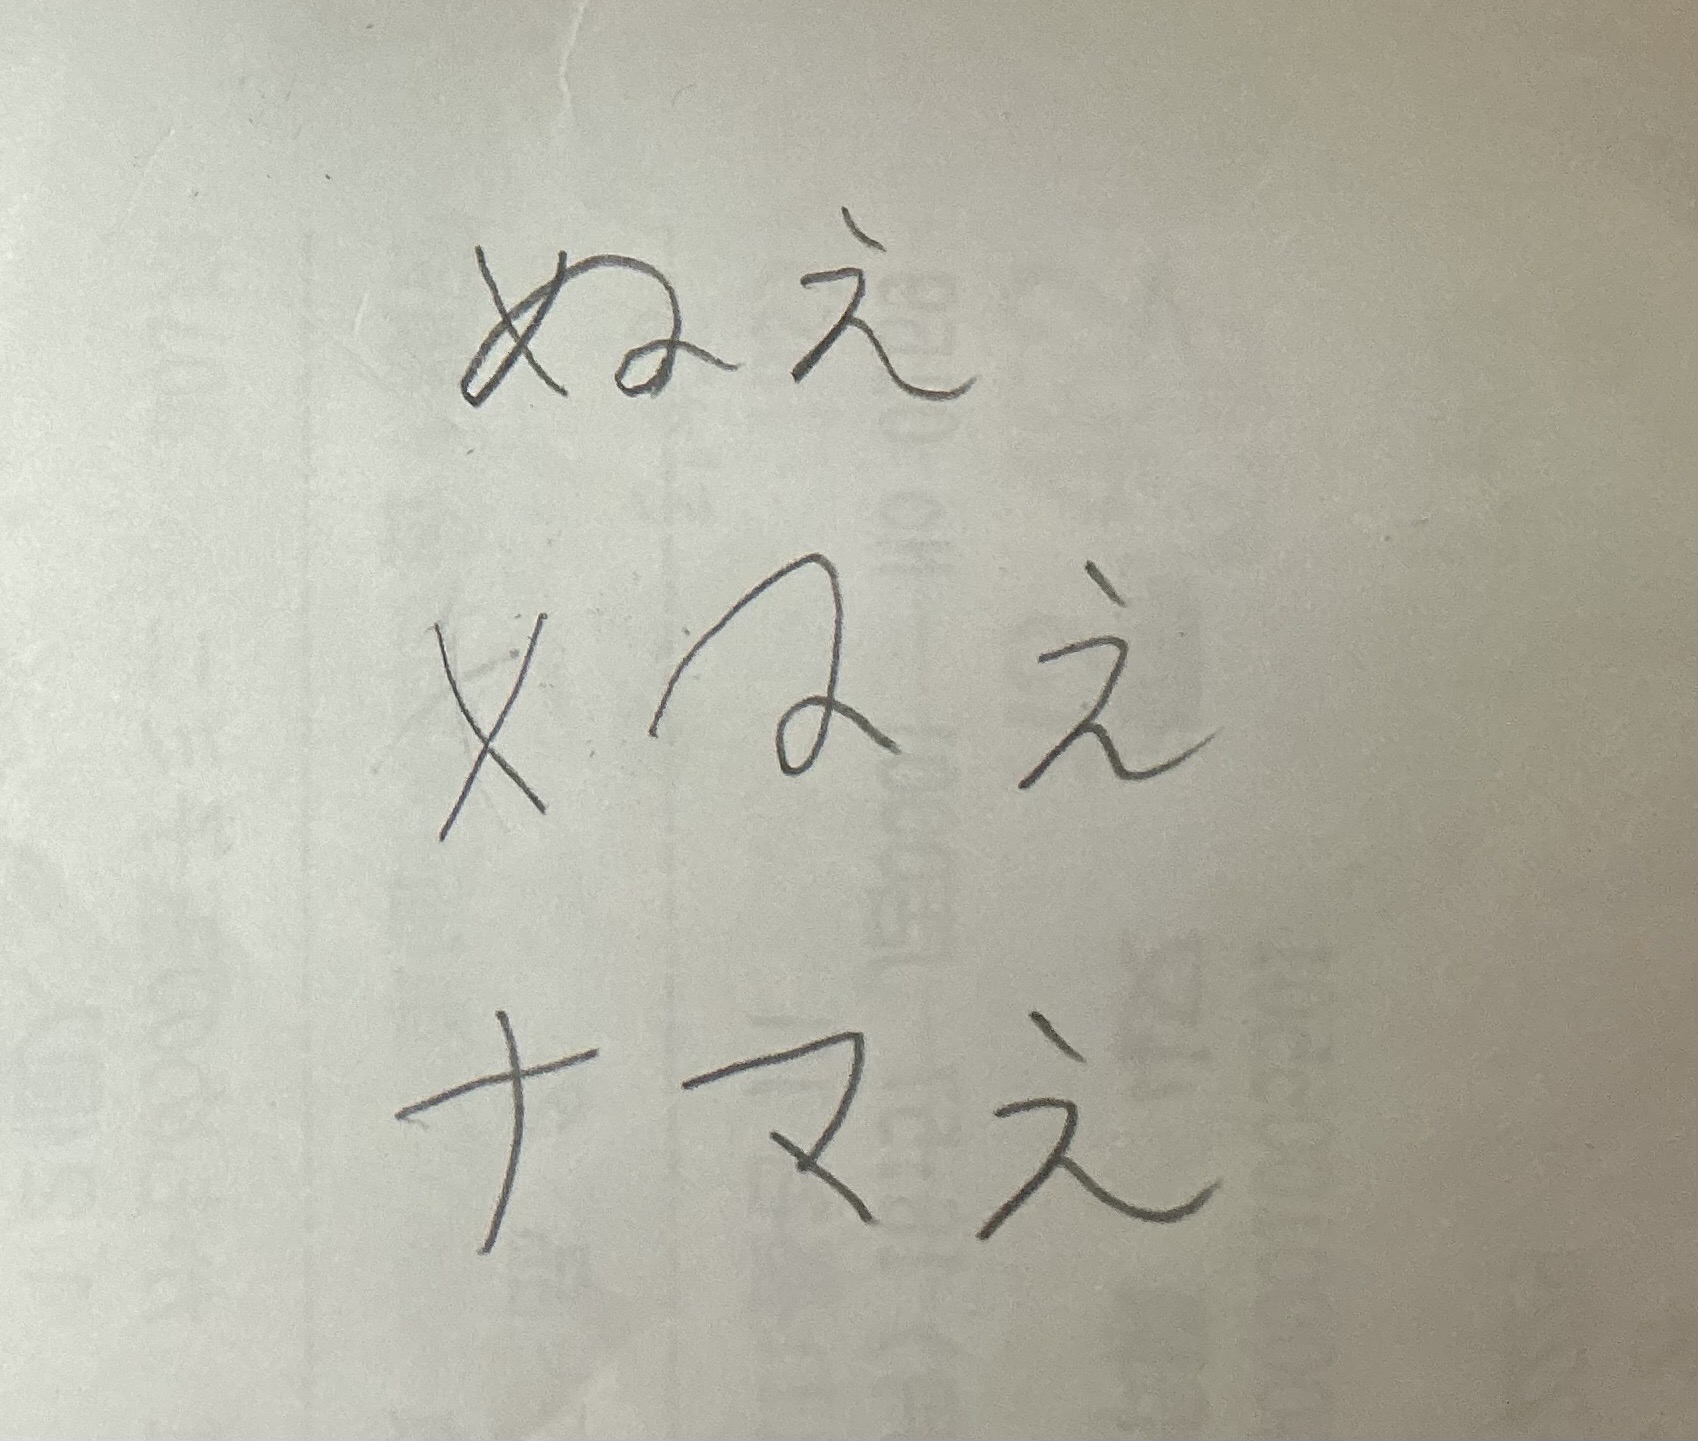 ぬえ
メ え
ナマえ